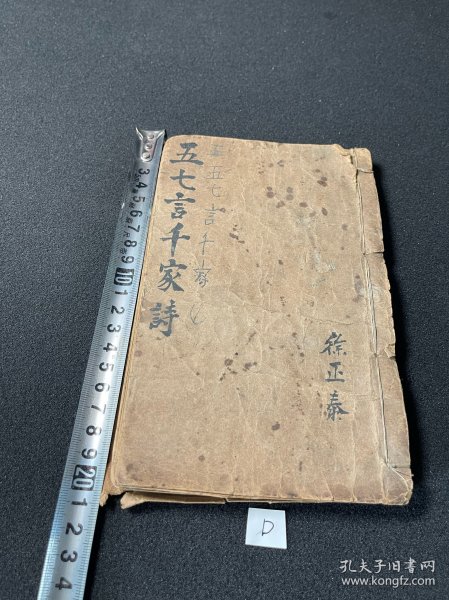 五七言千家詩
五七言千家
徐正泰
3 4 5 6 7 8 9 10 1 2 3 4 5 6 7 8 9 20 1 2 3 4
D
孔夫子旧书网
www.kongfz.com